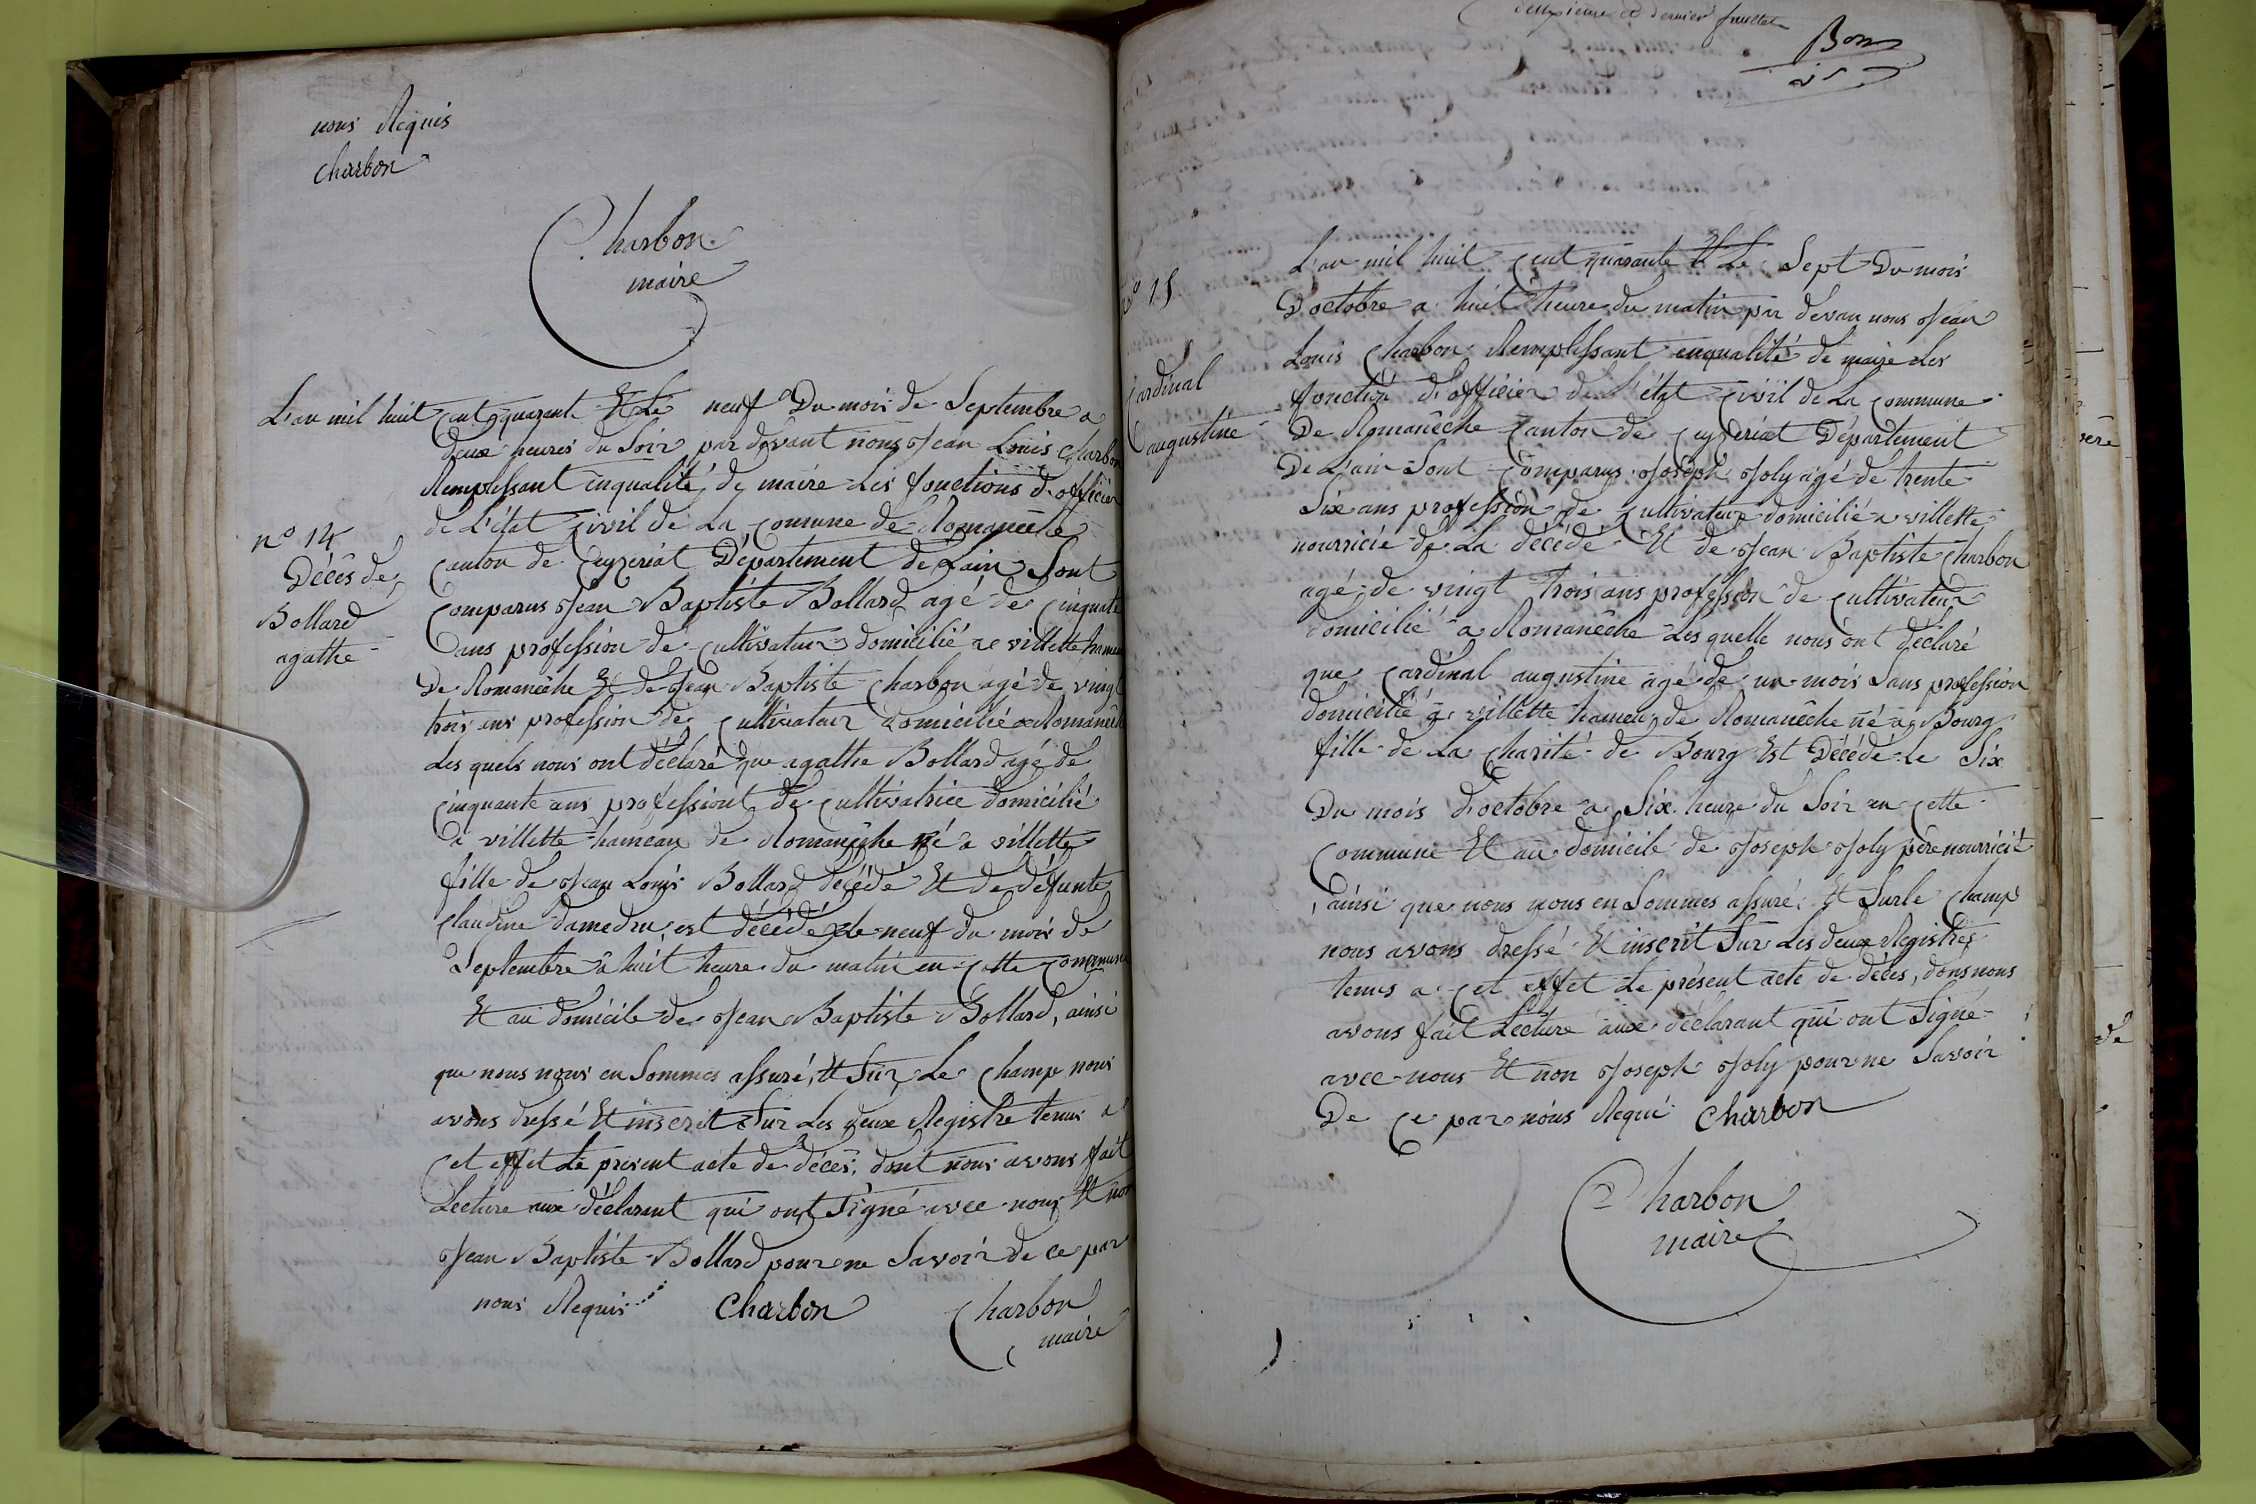 nous Requis
Charbon
Charbon
maire
L'an mil huit cent quarante Et Le neuf Du mois de Septembre a
deux heures du Soir par devant nous Jean Louis Charbon
Remplissant enqualité de maire Les fonctions d'officier
de L'état Civil de La Comune de Romanêche
n° 14
Décês de
Bollard
agathe
Canton de Ceyzeriat Département de Lain Sont
Comparus Jean Baptiste Bollard agé de Cinquate
ans profession de Cultivateur domicilié a villette hameau
De Romanêche Et de Jean Baptiste Charbon agé de vingt
trois ans profession de Cultivateur domicilié a Romanêche
Les quels nous ont déclaré que agathe Bollard agé de
Cinquante ans profession de Cultivatrice domicilié
a villette hameau de Romanêche né a villette
fille de Jean Louis Bollard décédé Et de défunte
Claudine damedru est décédé le neuf du mois de
Septembre à huit heure du matin en Cette Commune
Et au domicile de Jean Baptiste Bollard, ainsi
que nous nous en Sommes assuré, Et Sur Le Champ nous
avons dressé Et inscrit Sur Les deux Registre tenus a
Cet effet Le présent acte de décès, dont nous avons fait
Lecture aux déclarant qui ont Signé avec nous Et non
Jean Baptiste Bollard pour ne Savoir de ce par
nous Requis Charbon Charbon
maire
deuxieme et dernier feuillet
Bon
n° 15
Cardinal
augustine
L'an mil huit Cent quarante Et Le Sept Du mois
D'octobre a huit heure du matin par devan nous Jean
Louis Charbon Remplissant enqualité de maire Les
fonction d'officier de L'état Civil de La Commune
De Romanêche Canton de Ceyzeriat Département
De L'ain Sont Comparus Joseph Joly agé de trente
Six ans profession de Cultivateur domicilié a villette
nourricié de La décédé Et de Jean Baptiste Charbon
agé de vingt trois ans profession de Cultivateur
domicilié a Romanêche Les quelle nous ont déclaré
que Cardinal augustine agé de un mois Sans profession
domicilié a villette hameu de Romanêche né a Bourg
fille de La Charité de Bourg Est Décédé Le Six
Du mois d'octobre a Six heure du Soir en Cette
Commune Et au domicile de Joseph Joly père nourricié
ainsi que nous nous en Sommes assuré Et Sur le Champ
nous avons dressé Et inscrit Sur Les deux Registres
tenus a Cet effet Le présent acte de décès, dons nous
avons fait Lecture aux déclarant qui ont Signé
avec nous Et non Joseph Joly pour ne Savoir
De Ce par nous Requi Charbon
Charbon
maire